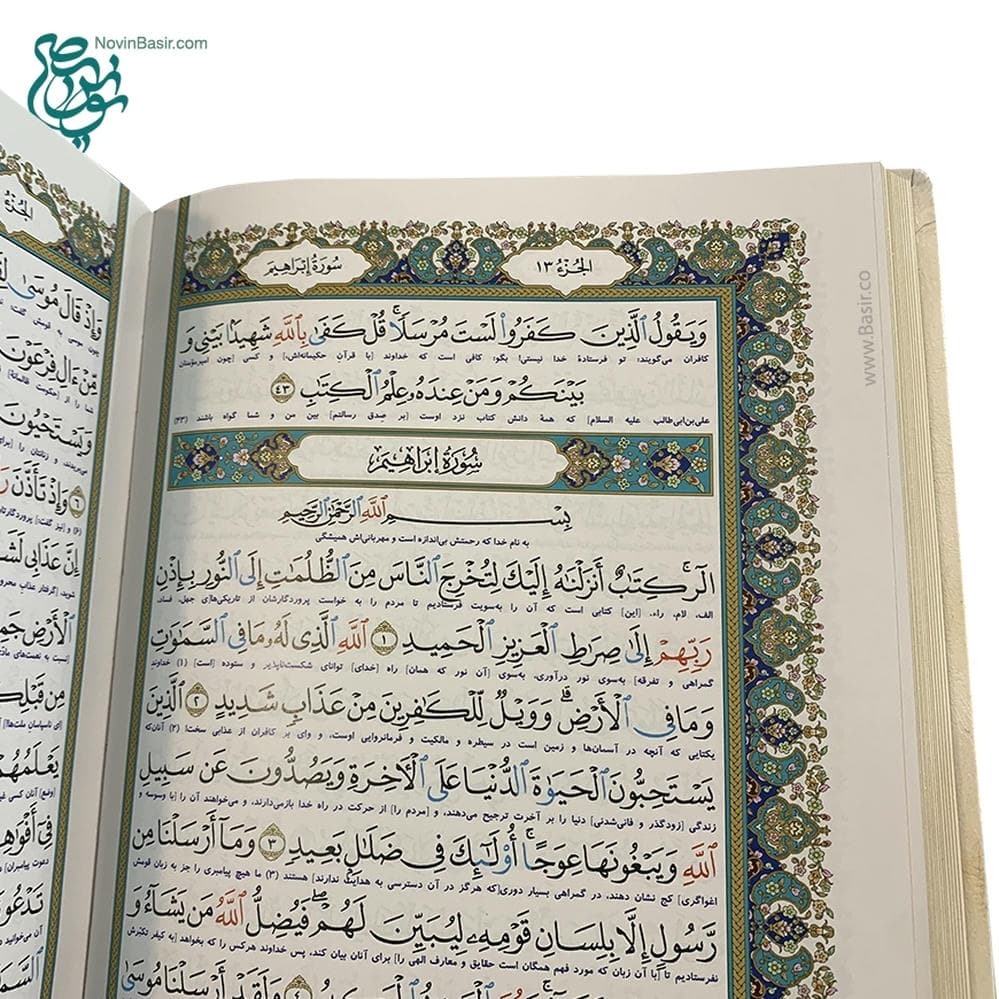 NovinBasir.com
www.Basir.co
الجُزءُ ١٣
سُورَةُ إبراهيم
وَيَقُولُ الَّذينَ كَفَرُوا لَستَ مُرسَلًا ۚ قُل كَفىٰ بِاللَّهِ شَهيدًا بَيني وَ
کافران می‌گویند: تو فرستادهٔ خدا نیستی! بگو: کافی است که خداوند [با قرآن حکیمانه‌اش،] و کسی [چون امیرمؤمنان
بَينَكُم وَمَن عِندَهُ عِلمُ الكِتابِ ٤٣
علی‌بن‌ابی‌طالب علیه السلام] که همهٔ دانش کتاب نزد اوست [بر صدق رسالتم] بین من و شما گواه باشند (۴۳)
سُورَةُ إبراهيم
بِسمِ اللَّهِ الرَّحمٰنِ الرَّحيمِ
به نام خدا که رحمتش بی‌اندازه است و مهربانی‌اش همیشگی
الر ۚ كِتابٌ أَنزَلناهُ إِلَيكَ لِتُخرِجَ النّاسَ مِنَ الظُّلُماتِ إِلَى النّورِ بِإِذنِ
الف، لام، راء. [این] کتابی است که آن را به‌سویت فرستادیم تا مردم را به خواست پروردگارشان از تاریکی‌های [جهل، فساد،
رَبِّهِم إِلىٰ صِراطِ العَزيزِ الحَميدِ ١ اللَّهِ الَّذي لَهُ ما فِي السَّماواتِ
گمراهی و تفرقه] به‌سوی نور درآوری، به‌سوی [آن نور که همان] راه [خدای] توانای شکست‌ناپذیر و ستوده [است] (۱) خداوند
وَما فِي الأَرضِ ۗ وَوَيلٌ لِلكافِرينَ مِن عَذابٍ شَديدٍ ٢ الَّذينَ
یکتایی که آنچه در آسمان‌ها و زمین است در سیطره و مالکیت و فرمانروایی اوست، و وای بر کافران از عذابی سخت! (۲) آنان‌که
يَستَحِبّونَ الحَياةَ الدُّنيا عَلَى الآخِرَةِ وَيَصُدّونَ عَن سَبيلِ
زندگی [زودگذر و فانی‌شدنی] دنیا را بر آخرت ترجیح می‌دهند، و [مردم را] از حرکت در راه خدا بازمی‌دارند، و می‌خواهند آن را [با وسوسه و
اللَّهِ وَيَبغونَها عِوَجًا ۚ أُولٰئِكَ في ضَلالٍ بَعيدٍ ٣ وَما أَرسَلنا مِن
اغواگری] کج نشان دهند، در گمراهی بسیار دوری[که هرگز در آن دسترسی به هدایت ندارند] هستند (۳) ما هیچ پیامبری را جز به زبان قومش
رَسولٍ إِلّا بِلِسانِ قَومِهِ لِيُبَيِّنَ لَهُم ۖ فَيُضِلُّ اللَّهُ مَن يَشاءُ وَ
نفرستادیم تا [با آن زبان که مورد فهم همگان است حقایق و معارف الهی را] برای آنان بیان کند، پس خداوند هرکس را که بخواهد [به کیفر تکبّرش
٤ وَلَقَد أَرسَلنا موسىٰ
الجُزءُ
وَإِذ قالَ موسىٰ
مِن آلِ فِرعَونَ
وَيَستَحيونَ
٦ وَإِذ تَأَذَّنَ
إِنَّ عَذابي
الأَرضِ
مِن قَبلِكُم
يَعلَمُهُم
في أَفواهِهِم
تَدعونَنا